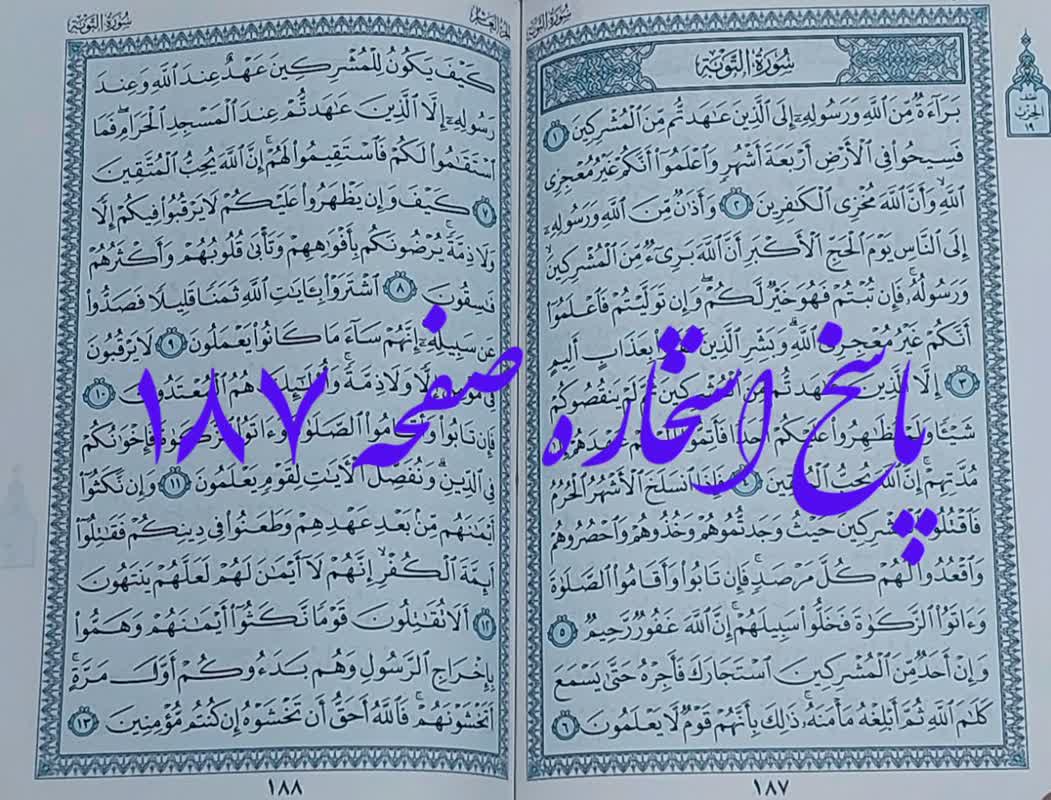 سُورَةُ التَّوْبَةِ
نصف
الحزب
١٩
سُورَةُ التَّوْبَةِ
بَرَآءَةٌ مِّنَ ٱللَّهِ وَرَسُولِهِۦٓ إِلَى ٱلَّذِينَ عَٰهَدتُّم مِّنَ ٱلْمُشْرِكِينَ ١
فَسِيحُوا۟ فِى ٱلْأَرْضِ أَرْبَعَةَ أَشْهُرٍ وَٱعْلَمُوٓا۟ أَنَّكُمْ غَيْرُ مُعْجِزِى
ٱللَّهِ وَأَنَّ ٱللَّهَ مُخْزِى ٱلْكَٰفِرِينَ ٢ وَأَذَٰنٌ مِّنَ ٱللَّهِ وَرَسُولِهِۦٓ
إِلَى ٱلنَّاسِ يَوْمَ ٱلْحَجِّ ٱلْأَكْبَرِ أَنَّ ٱللَّهَ بَرِىٓءٌ مِّنَ ٱلْمُشْرِكِينَ
وَرَسُولُهُۥ فَإِن تُبْتُمْ فَهُوَ خَيْرٌ لَّكُمْ وَإِن تَوَلَّيْتُمْ فَٱعْلَمُوٓا۟
أَنَّكُمْ غَيْرُ مُعْجِزِى ٱللَّهِ وَبَشِّرِ ٱلَّذِينَ بِعَذَابٍ أَلِيمٍ
٣ إِلَّا ٱلَّذِينَ عَٰهَدتُّم مِّنَ ٱلْمُشْرِكِينَ ثُمَّ لَمْ يَنقُصُوكُمْ
شَيْـًٔا وَلَمْ يُظَٰهِرُوا۟ عَلَيْكُمْ أَحَدًا فَأَتِمُّوٓا۟ عَهْدَهُمْ إِلَىٰ
مُدَّتِهِمْ إِنَّ ٱللَّهَ يُحِبُّ ٱلْمُتَّقِينَ ٤ فَإِذَا ٱنسَلَخَ ٱلْأَشْهُرُ ٱلْحُرُمُ
فَٱقْتُلُوا۟ ٱلْمُشْرِكِينَ حَيْثُ وَجَدتُّمُوهُمْ وَخُذُوهُمْ وَٱحْصُرُوهُمْ
وَٱقْعُدُوا۟ لَهُمْ كُلَّ مَرْصَدٍ فَإِن تَابُوا۟ وَأَقَامُوا۟ ٱلصَّلَوٰةَ
وَءَاتَوُا۟ ٱلزَّكَوٰةَ فَخَلُّوا۟ سَبِيلَهُمْ إِنَّ ٱللَّهَ غَفُورٌ رَّحِيمٌ ٥
وَإِنْ أَحَدٌ مِّنَ ٱلْمُشْرِكِينَ ٱسْتَجَارَكَ فَأَجِرْهُ حَتَّىٰ يَسْمَعَ
كَلَٰمَ ٱللَّهِ ثُمَّ أَبْلِغْهُ مَأْمَنَهُۥ ذَٰلِكَ بِأَنَّهُمْ قَوْمٌ لَّا يَعْلَمُونَ ٦
١٨٧
سُورَةُ التَّوْبَةِ
كَيْفَ يَكُونُ لِلْمُشْرِكِينَ عَهْدٌ عِندَ ٱللَّهِ وَعِندَ
رَسُولِهِۦٓ إِلَّا ٱلَّذِينَ عَٰهَدتُّمْ عِندَ ٱلْمَسْجِدِ ٱلْحَرَامِ فَمَا
ٱسْتَقَٰمُوا۟ لَكُمْ فَٱسْتَقِيمُوا۟ لَهُمْ إِنَّ ٱللَّهَ يُحِبُّ ٱلْمُتَّقِينَ
٧ كَيْفَ وَإِن يَظْهَرُوا۟ عَلَيْكُمْ لَا يَرْقُبُوا۟ فِيكُمْ إِلًّا
وَلَا ذِمَّةً يُرْضُونَكُم بِأَفْوَٰهِهِمْ وَتَأْبَىٰ قُلُوبُهُمْ وَأَكْثَرُهُمْ
فَٰسِقُونَ ٨ ٱشْتَرَوْا۟ بِـَٔايَٰتِ ٱللَّهِ ثَمَنًا قَلِيلًا فَصَدُّوا۟
عَن سَبِيلِهِۦٓ إِنَّهُمْ سَآءَ مَا كَانُوا۟ يَعْمَلُونَ ٩ لَا يَرْقُبُونَ
فِى مُؤْمِنٍ إِلًّا وَلَا ذِمَّةً وَأُو۟لَٰٓئِكَ هُمُ ٱلْمُعْتَدُونَ ١٠
فَإِن تَابُوا۟ وَأَقَامُوا۟ ٱلصَّلَوٰةَ وَءَاتَوُا۟ ٱلزَّكَوٰةَ فَإِخْوَٰنُكُمْ
فِى ٱلدِّينِ وَنُفَصِّلُ ٱلْـَٔايَٰتِ لِقَوْمٍ يَعْلَمُونَ ١١ وَإِن نَّكَثُوٓا۟
أَيْمَٰنَهُم مِّنۢ بَعْدِ عَهْدِهِمْ وَطَعَنُوا۟ فِى دِينِكُمْ فَقَٰتِلُوٓا۟
أَئِمَّةَ ٱلْكُفْرِ إِنَّهُمْ لَآ أَيْمَٰنَ لَهُمْ لَعَلَّهُمْ يَنتَهُونَ
١٢ أَلَا تُقَٰتِلُونَ قَوْمًا نَّكَثُوٓا۟ أَيْمَٰنَهُمْ وَهَمُّوا۟
بِإِخْرَاجِ ٱلرَّسُولِ وَهُم بَدَءُوكُمْ أَوَّلَ مَرَّةٍ
أَتَخْشَوْنَهُمْ فَٱللَّهُ أَحَقُّ أَن تَخْشَوْهُ إِن كُنتُم مُّؤْمِنِينَ ١٣
١٨٨
پاسخ استخاره صفحه ۱۸۷